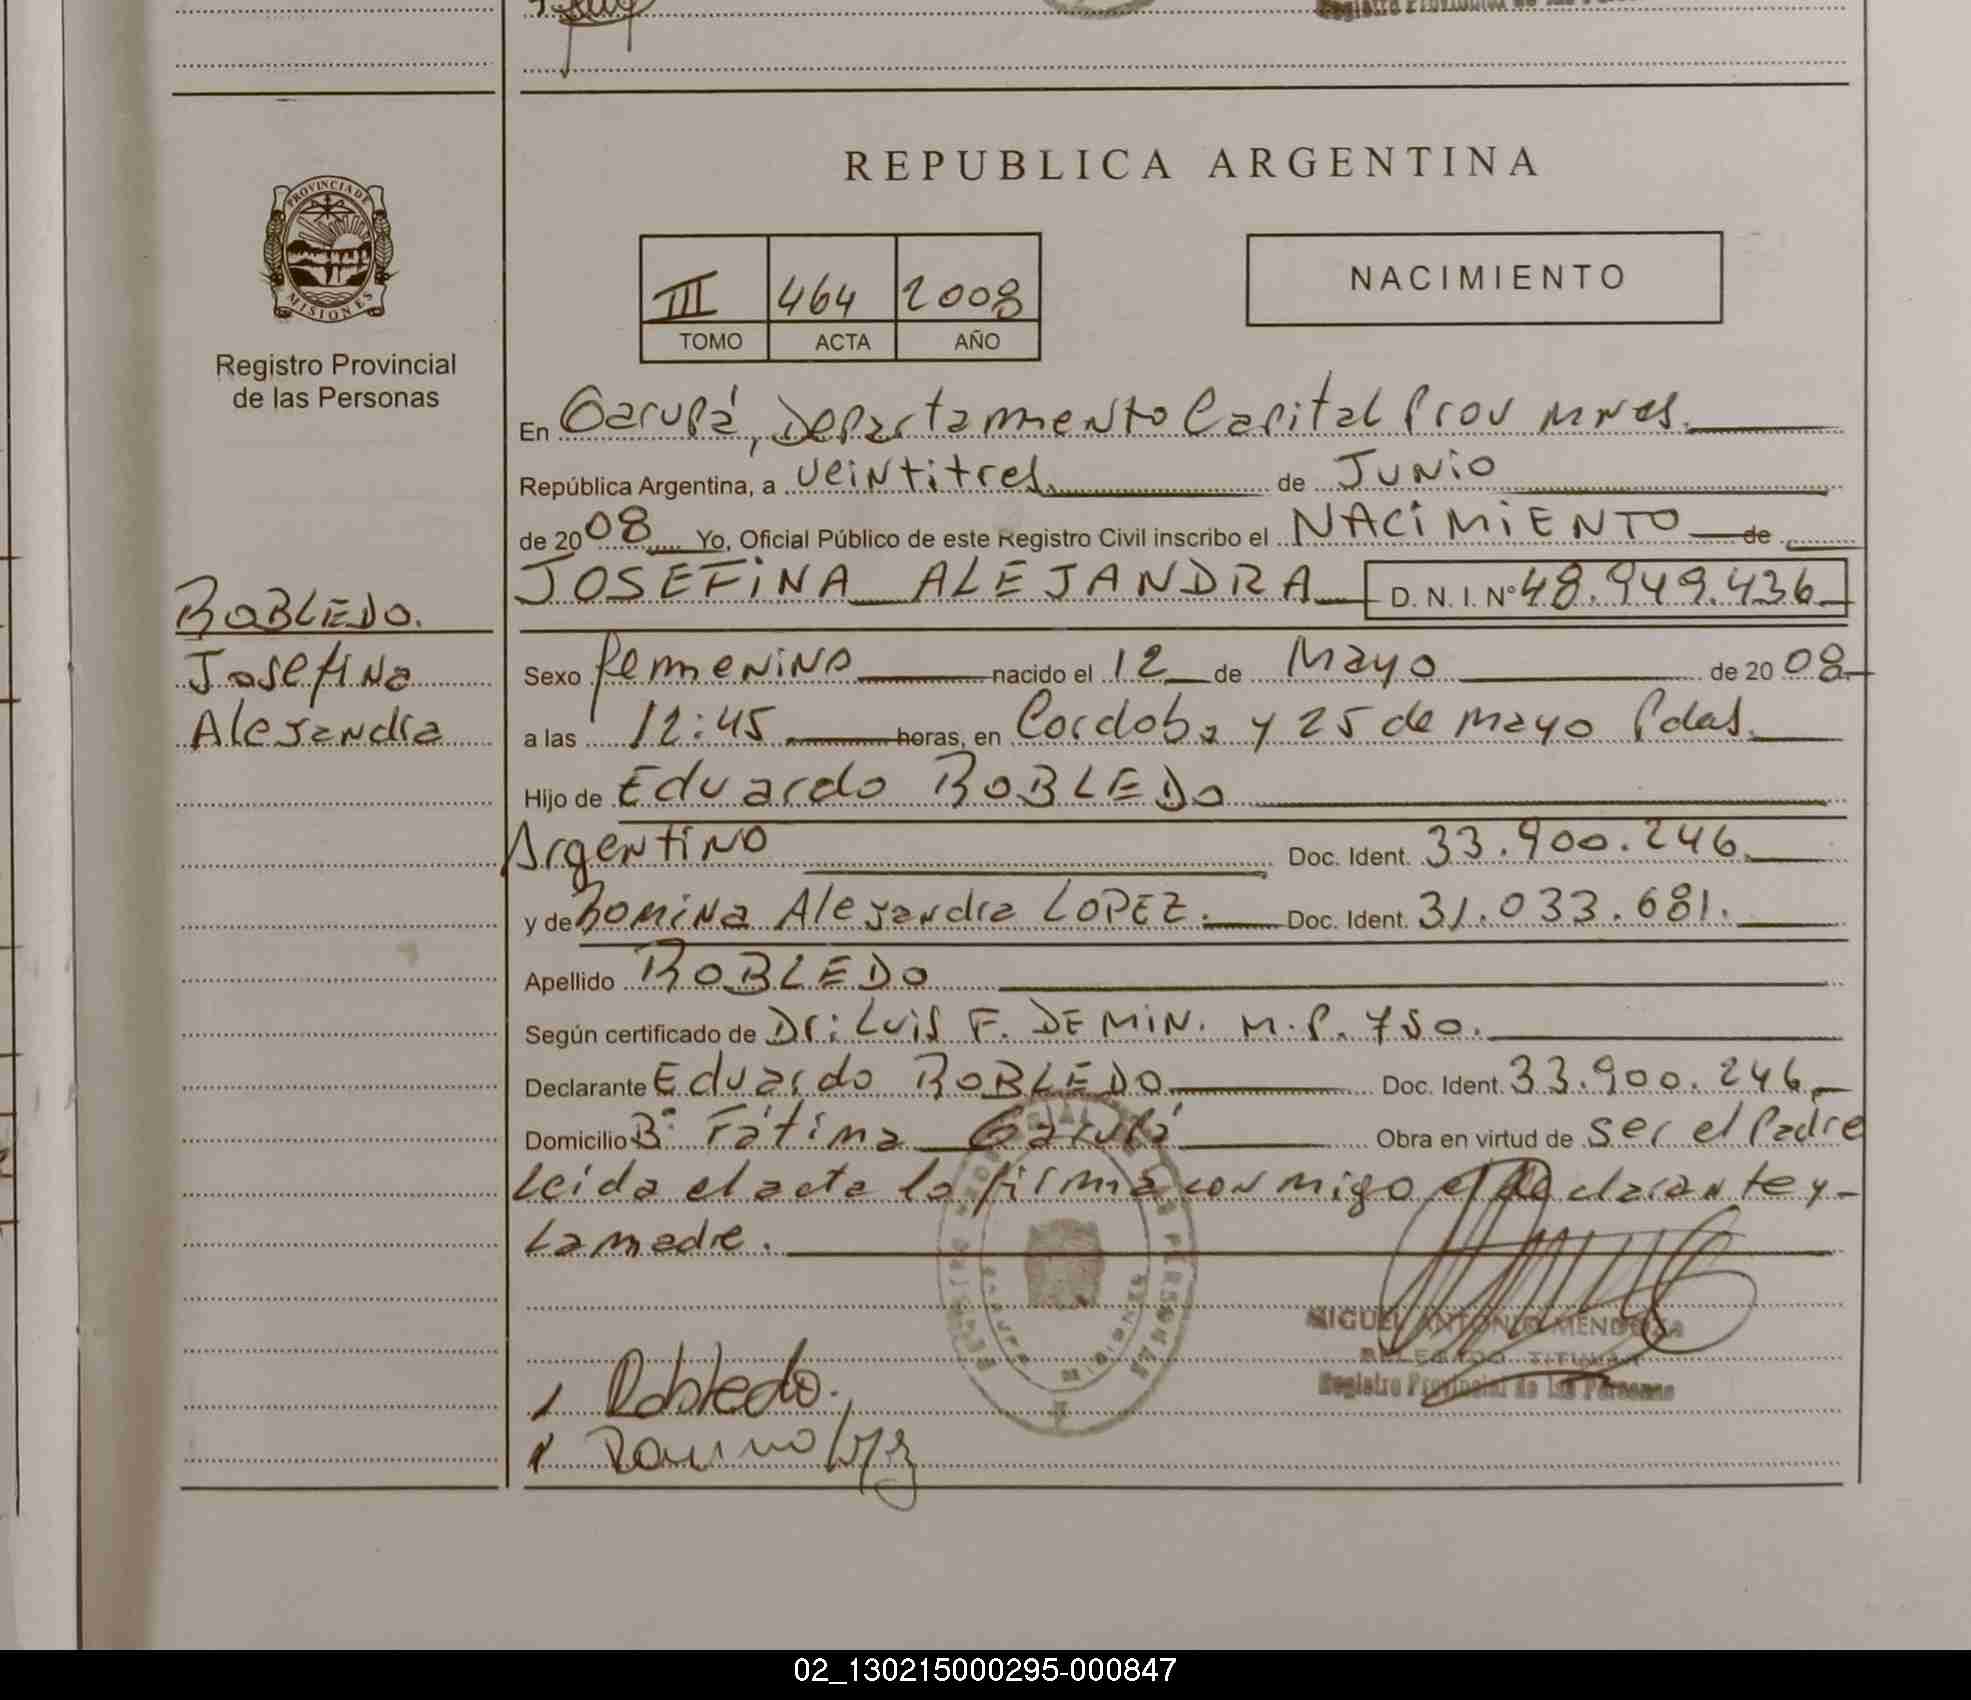 REPUBLICA ARGENTINA
PROVINCIA DE
MISIONES
Registro Provincial
de las Personas
III 464 2008
TOMO ACTA AÑO
NACIMIENTO
En Garupá, Departamento Capital Prov Mnes.
República Argentina, a veintitres de Junio
de 2008 Yo, Oficial Público de este Registro Civil inscribo el NACIMIENTO de
JOSEFINA ALEJANDRA D. N. I. Nº 48.949.436
ROBLEDO.
Josefina
Alejandra
Sexo femenino nacido el 12 de Mayo de 2008
a las 12:45 horas, en Cordoba y 25 de Mayo Pdas.
Hijo de Eduardo ROBLEDO
Argentino Doc. Ident. 33.900.246
y de Romina Alejandra LOPEZ. Doc. Ident. 31.033.681.
Apellido ROBLEDO
Según certificado de Dr: Luis F. DEMIN. M.P. 750.
Declarante Eduardo ROBLEDO Doc. Ident. 33.900.246
Domicilio Bº Fátima Garupá Obra en virtud de ser el Padre
Leida el acta la firma conmigo el declarante y
La madre.
MIGUEL ANTONIO MENDOZA
DELEGADO TITULAR
Registro Provincial de las Personas
Robledo.
02_130215000295-000847